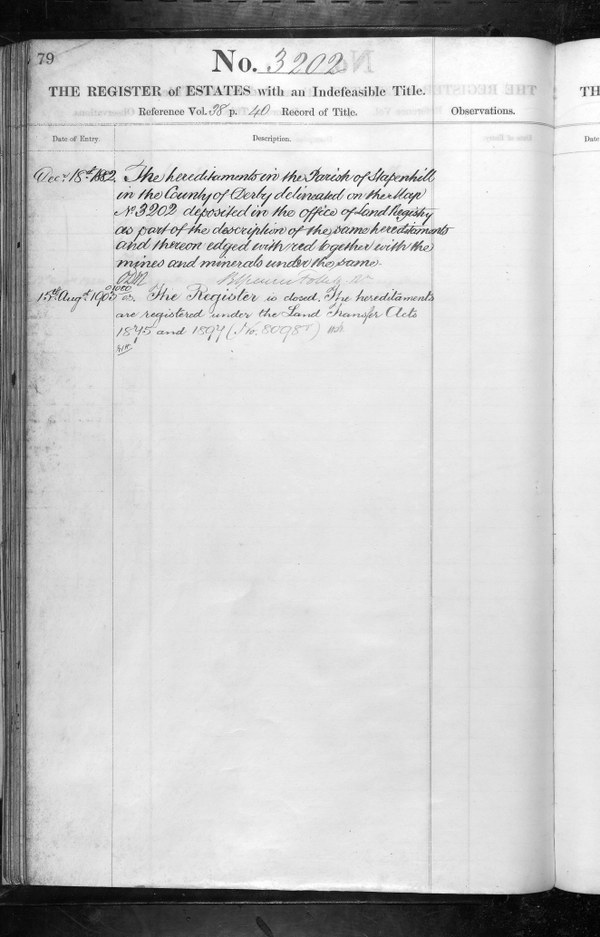 79
No. 3202
THE REGISTER of ESTATES with an Indefeasible Title.
Reference Vol. 38 p. 40 Record of Title. Observations.
Date of Entry. Description.
Decr. 18th 1882. The hereditaments in the Parish of Stapenhill
in the County of Derby delineated on the Map
No 3202 deposited in the office of Land Registry
as part of the description of the same hereditaments
and thereon edged with red together with the
mines and minerals under the same.
15th Augt. 1905 The Register is closed. The hereditaments
are registered under the Land Transfer Acts
1875 and 1897 (No. 80988)
TH
Date